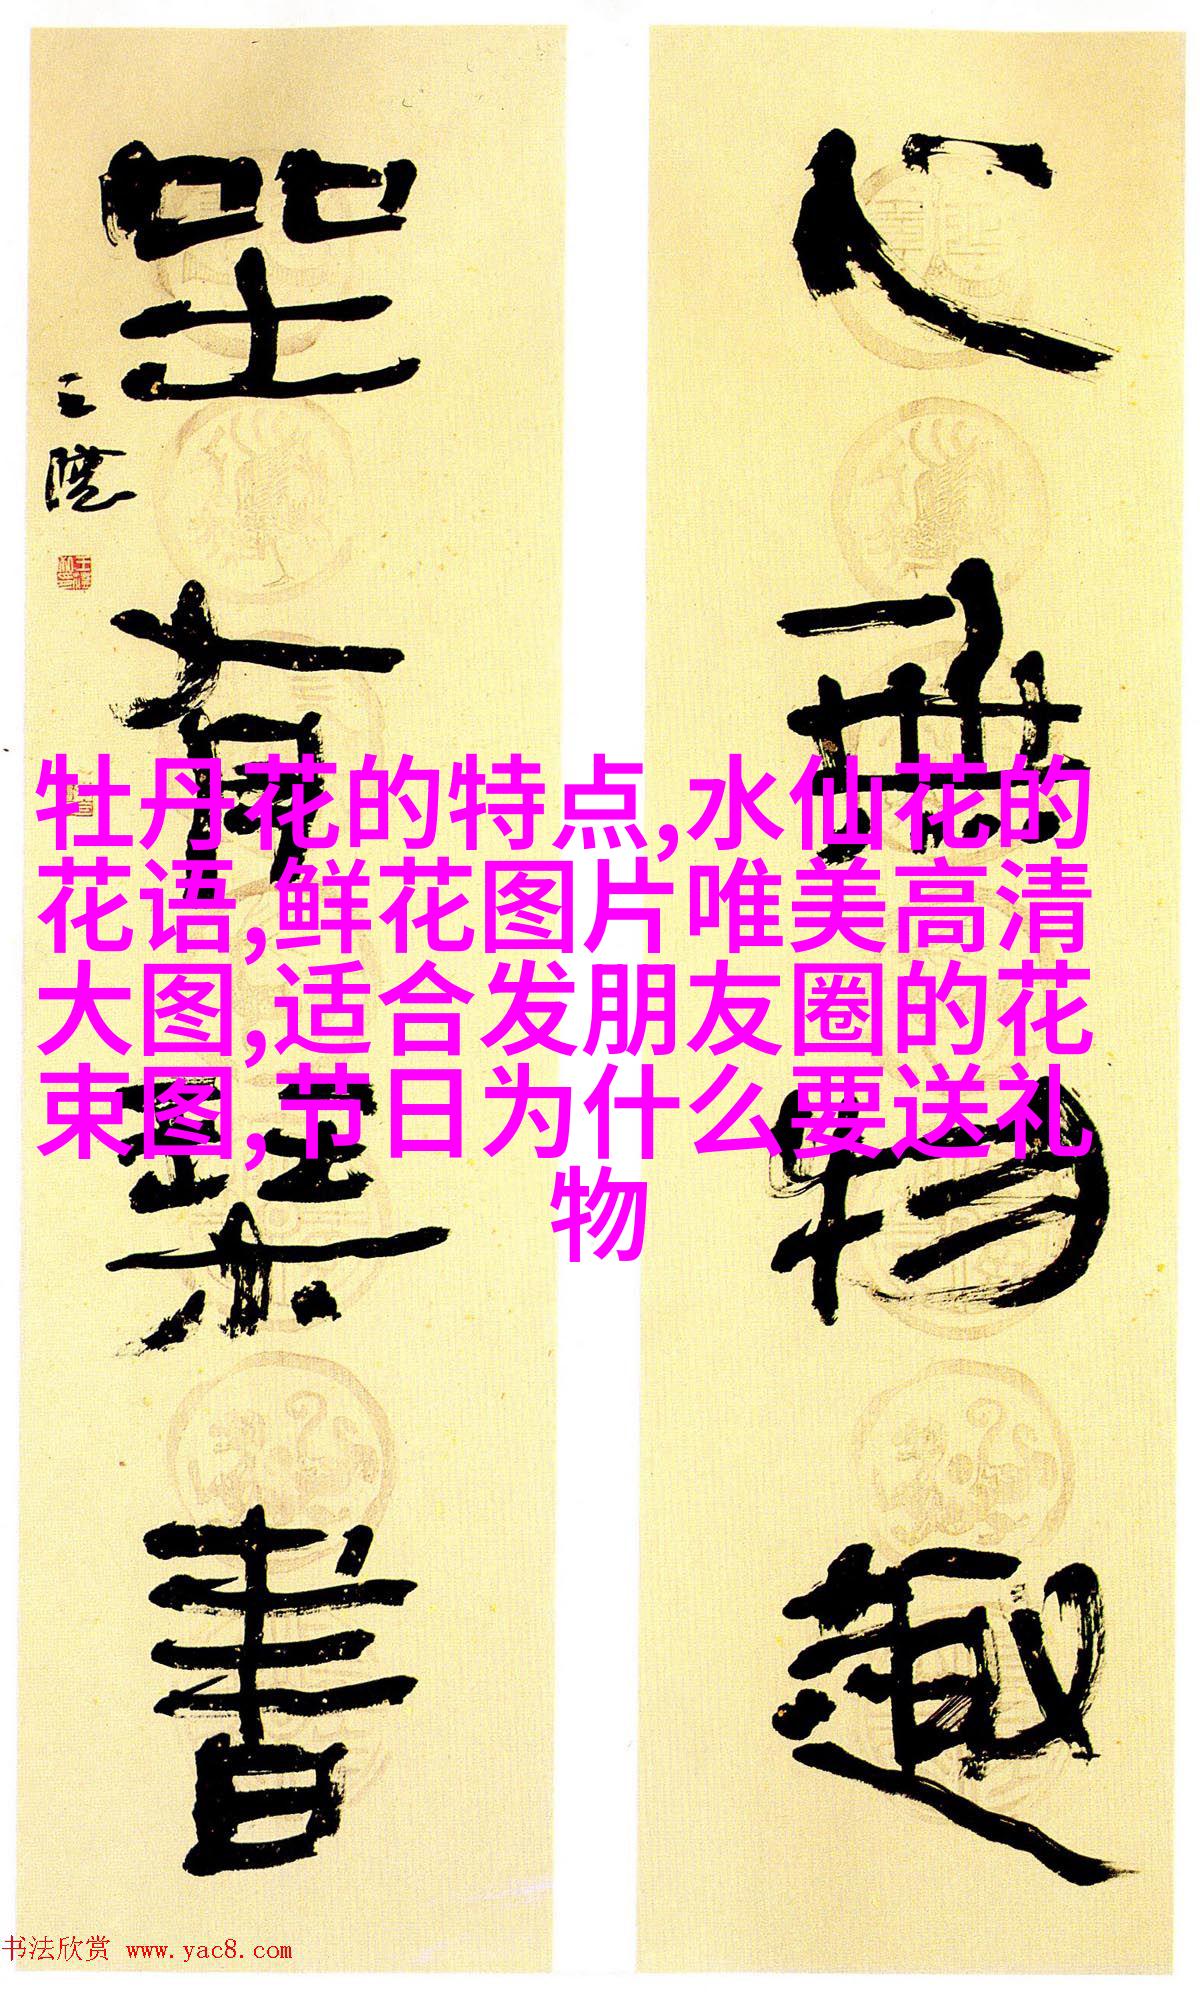 心無物趣
坐有琴書
王镛
牡丹花的特点,水仙花的
花语,鲜花图片唯美高清
大图,适合发朋友圈的花
束图,节日为什么要送礼
物
书法欣赏 www.yac8.com